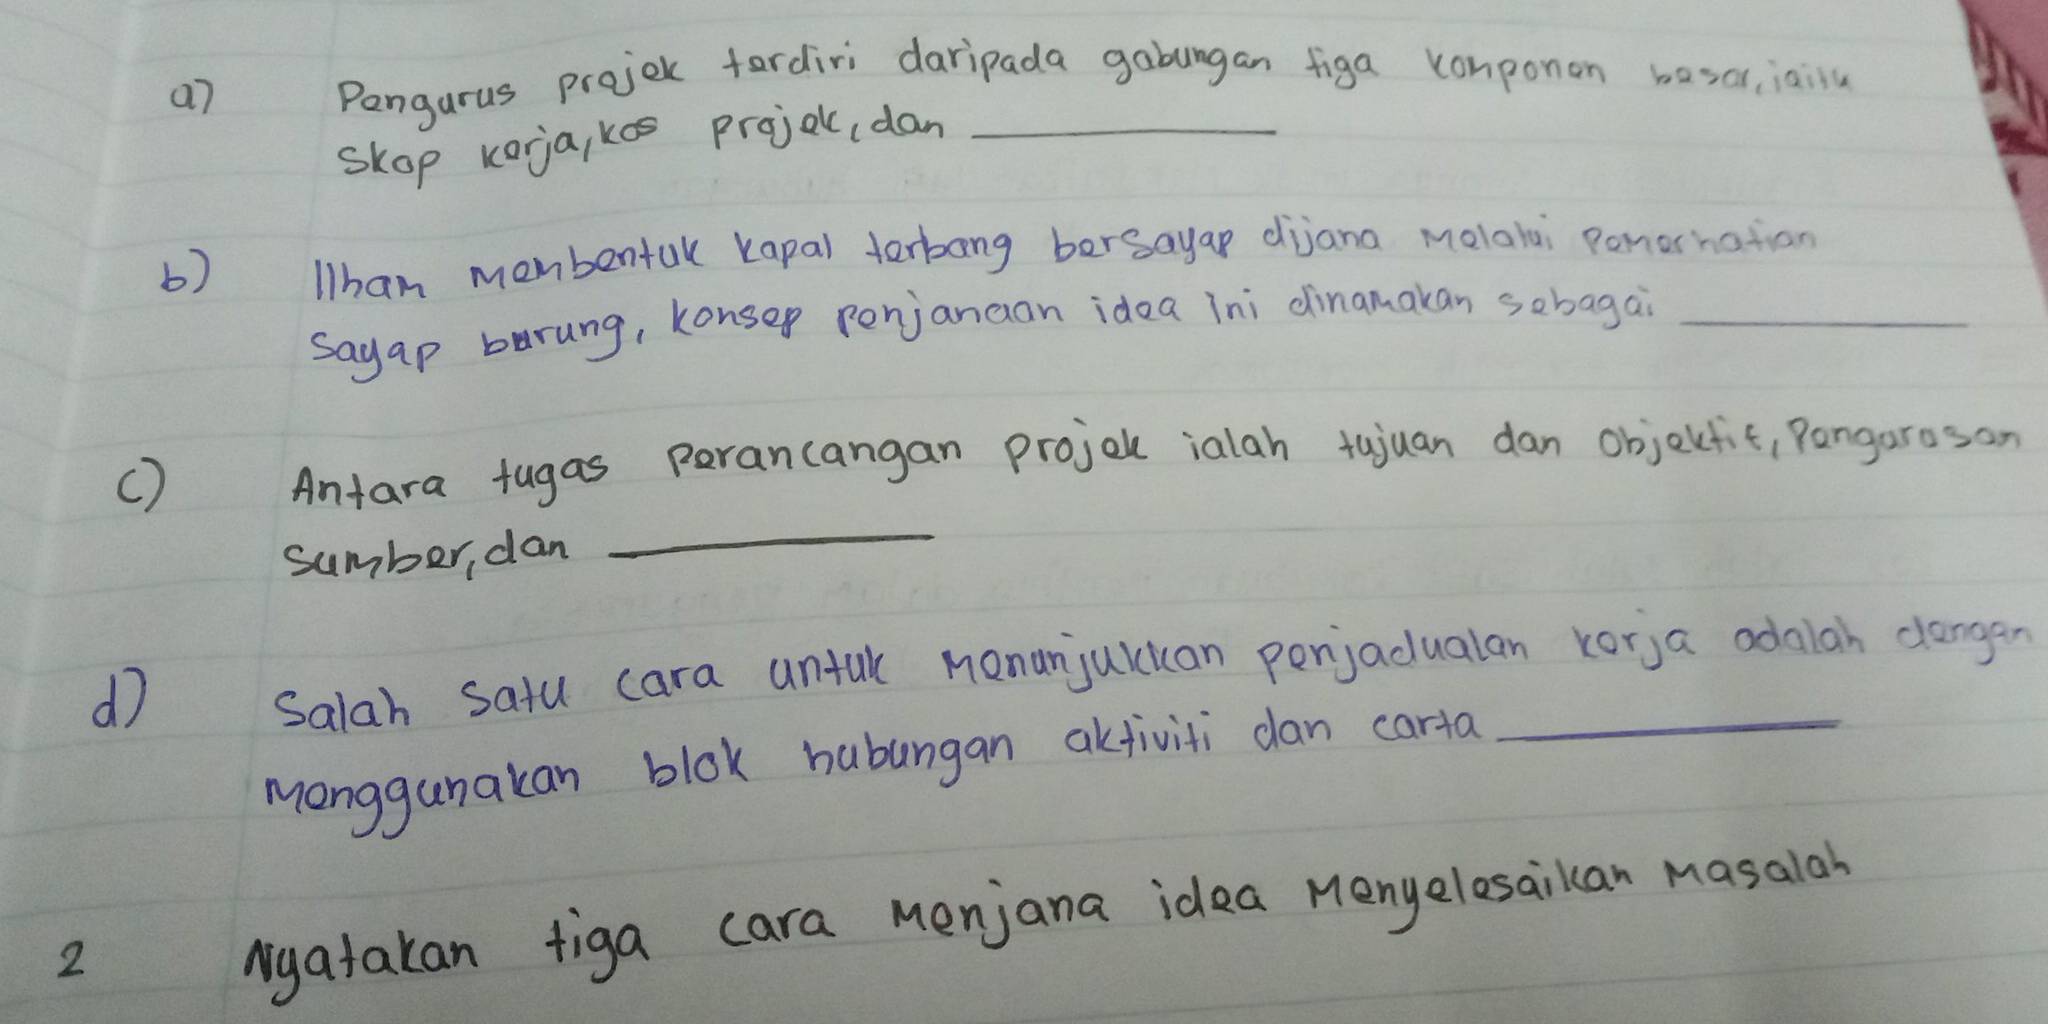 a) Pengurus projek terdiri daripada gabungan tiga komponen besar, iaitu
skop kerja, kos projek, dan ____________
b) Ilham membentuk kapal terbang bersayap dijana melalui pemerhatian
sayap burung, konsep penjanaan idea ini dinamakan sebagai ____________
c) Antara tugas perancangan projek ialah tujuan dan objektif, Pengurusan
sumber, dan ____________
d) Salah satu cara untuk menunjukkan penjadualan kerja adalah dengan
menggunakan blok hubungan aktiviti dan carta ____________
2 Nyatakan tiga cara menjana idea menyelesaikan masalah